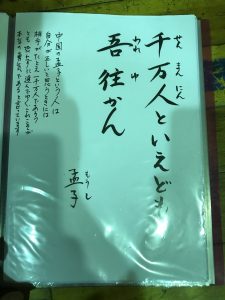 せんまんにん
千万人といえども
われ ゆ
吾往かん
もうし
孟子
中国の孟子という人は
自分が正しいと思うときには
相手がたとえ一千万人であろう
とも恐れずに進んでゆくこれこそが
本当の勇気であると言っています